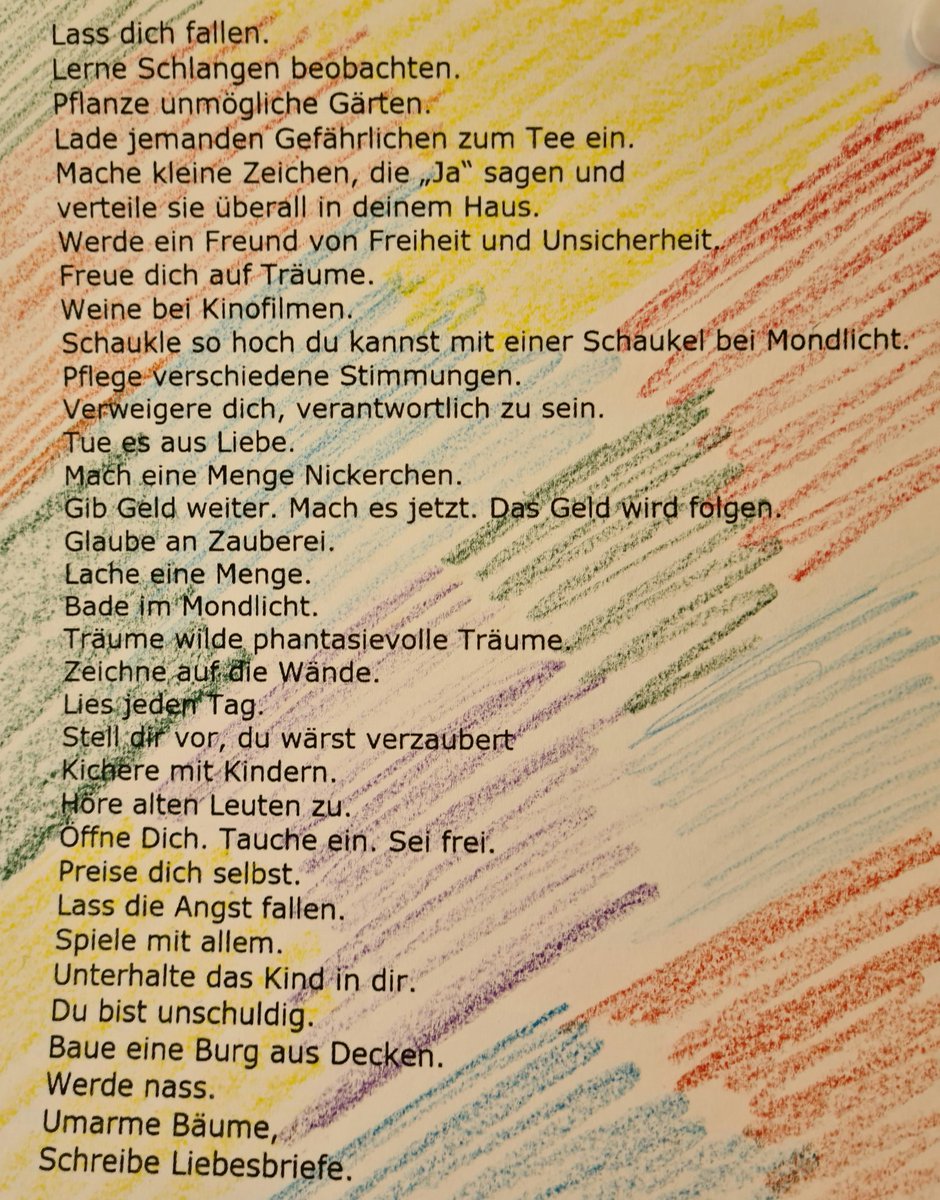 Lass dich fallen.
Lerne Schlangen beobachten.
Pflanze unmögliche Gärten.
Lade jemanden Gefährlichen zum Tee ein.
Mache kleine Zeichen, die „Ja“ sagen und
verteile sie überall in deinem Haus.
Werde ein Freund von Freiheit und Unsicherheit.
Freue dich auf Träume.
Weine bei Kinofilmen.
Schaukle so hoch du kannst mit einer Schaukel bei Mondlicht.
Pflege verschiedene Stimmungen.
Verweigere dich, verantwortlich zu sein.
Tue es aus Liebe.
Mach eine Menge Nickerchen.
Gib Geld weiter. Mach es jetzt. Das Geld wird folgen.
Glaube an Zauberei.
Lache eine Menge.
Bade im Mondlicht.
Träume wilde phantasievolle Träume.
Zeichne auf die Wände.
Lies jeden Tag.
Stell dir vor, du wärst verzaubert
Kichere mit Kindern.
Höre alten Leuten zu.
Öffne Dich. Tauche ein. Sei frei.
Preise dich selbst.
Lass die Angst fallen.
Spiele mit allem.
Unterhalte das Kind in dir.
Du bist unschuldig.
Baue eine Burg aus Decken.
Werde nass.
Umarme Bäume,
Schreibe Liebesbriefe.